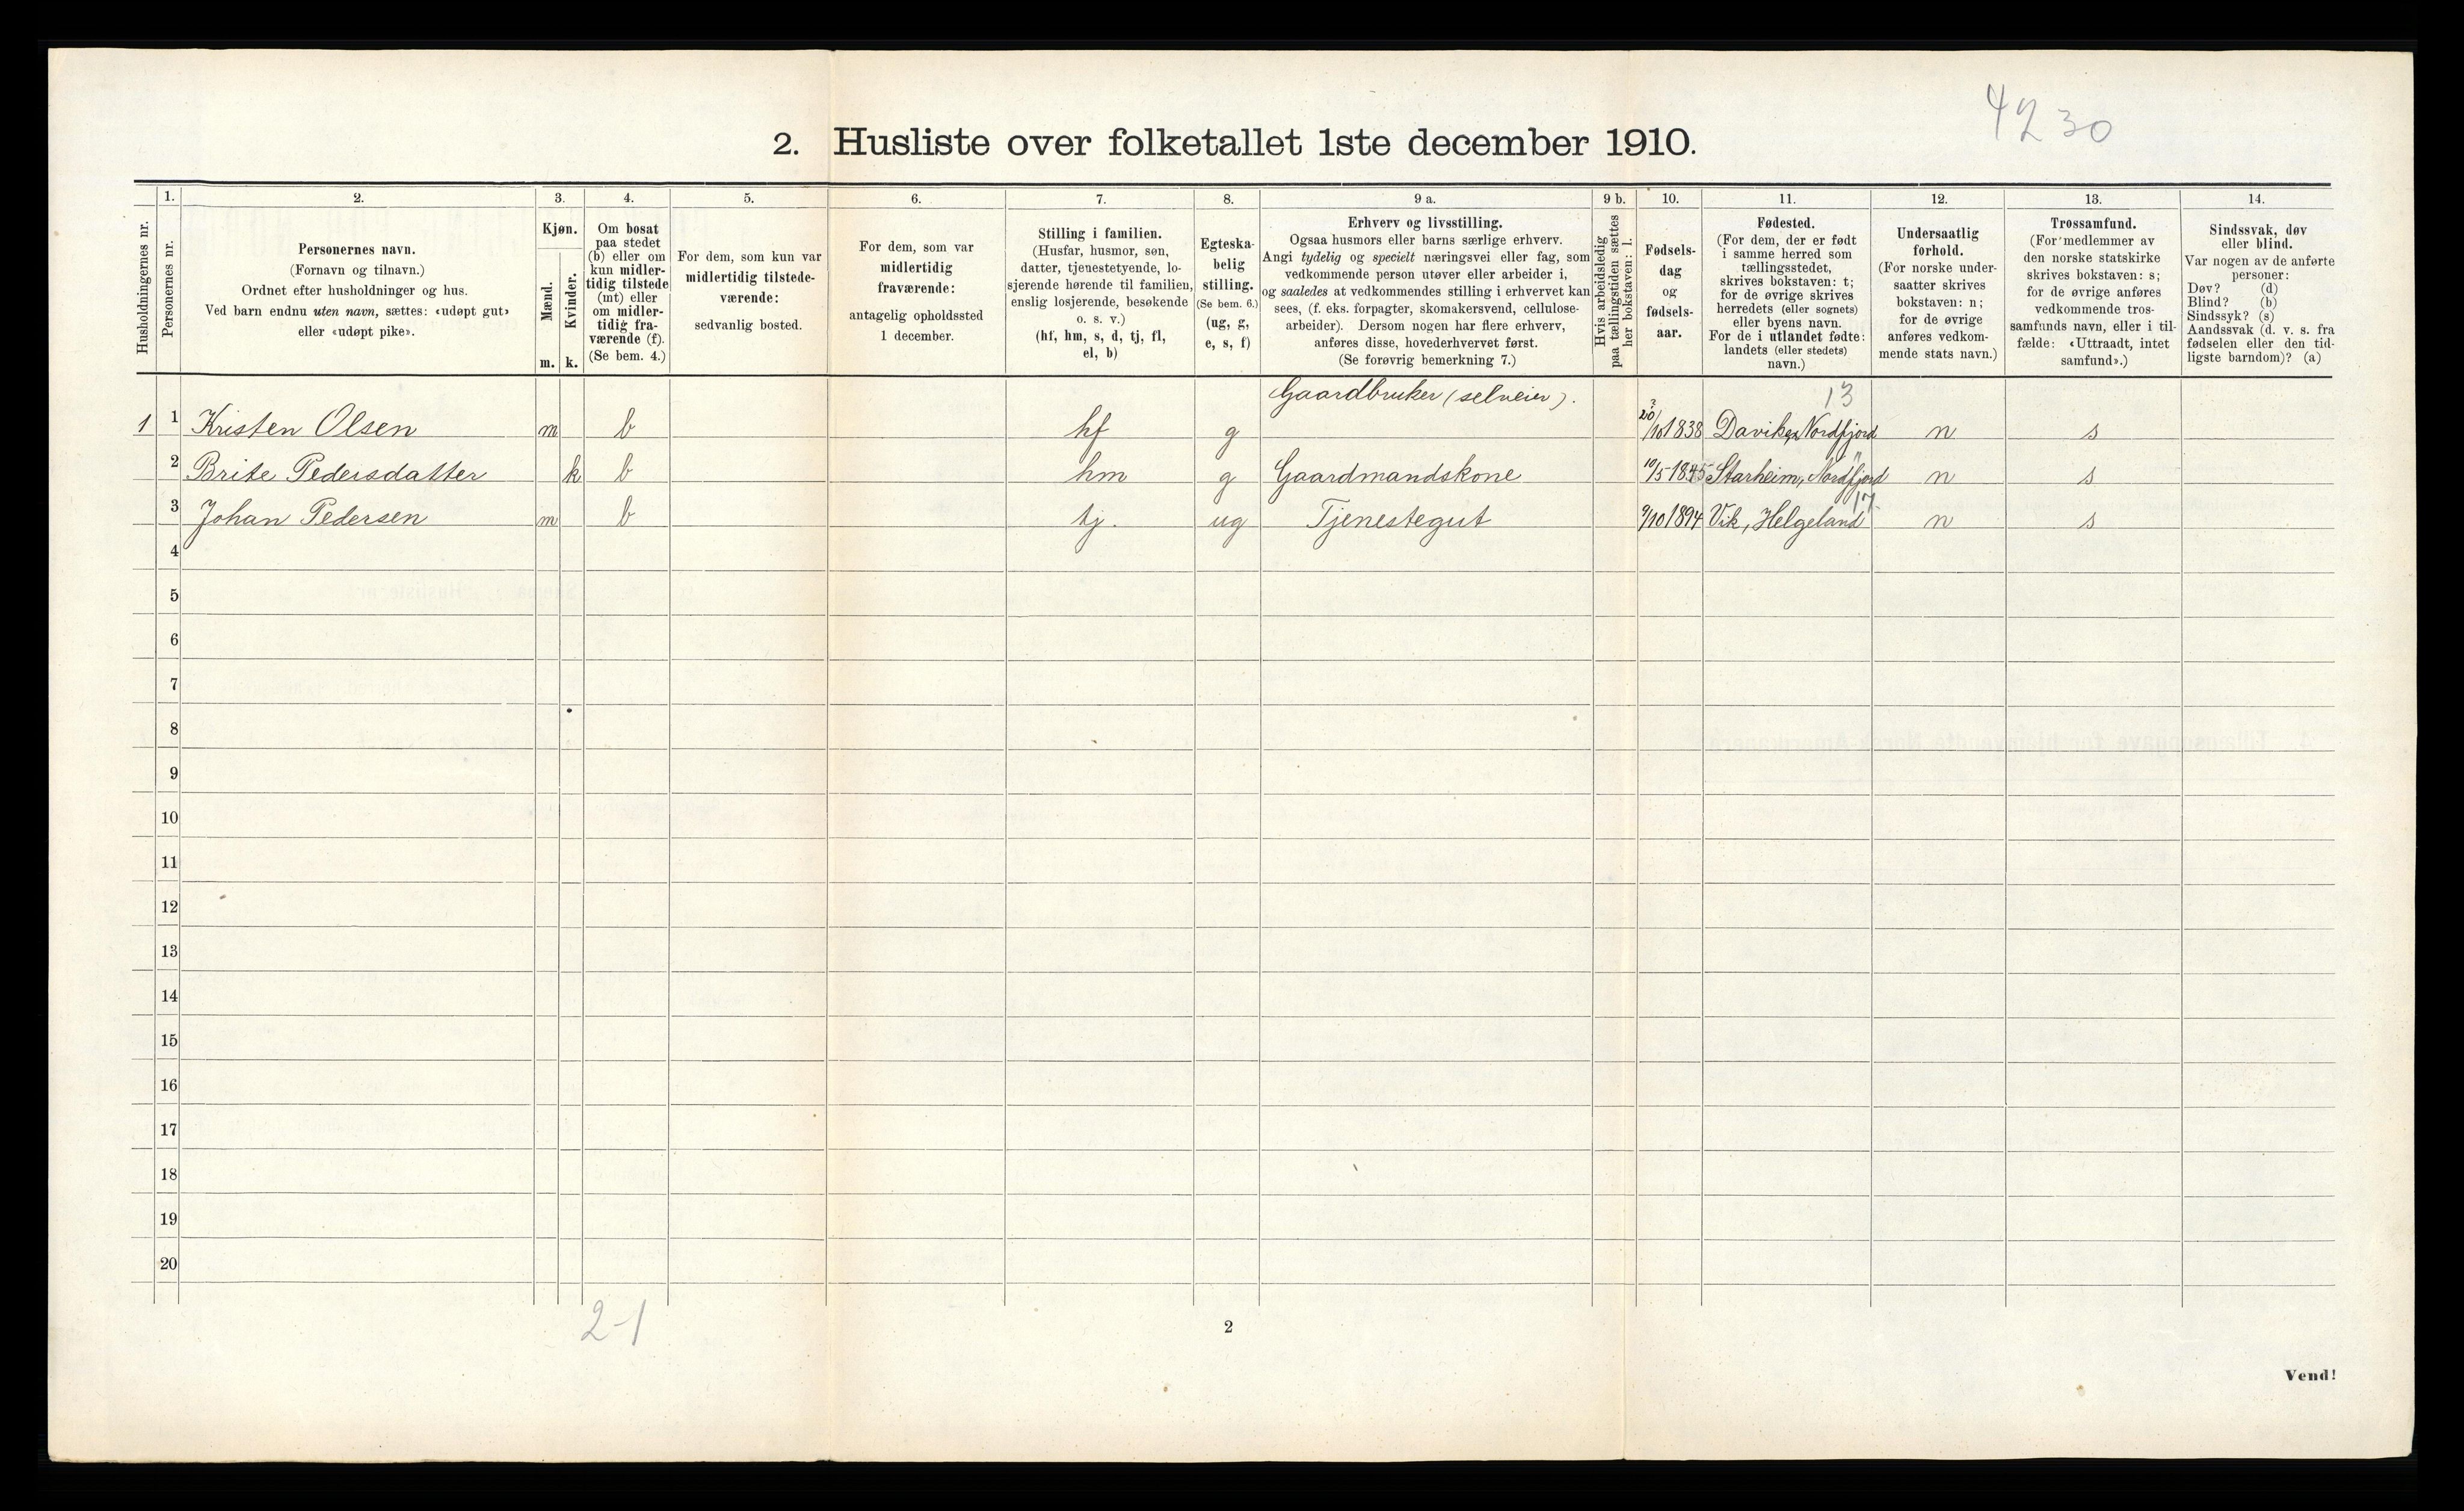 4230
2. Husliste over folketallet 1ste december 1910.
Husholdningernes nr.
1.
Personernes nr.
2.
Personernes navn.
(Fornavn og tilnavn.)
Ordnet efter husholdninger og hus.
Ved barn endnu uten navn, sættes: «udøpt gut»
eller «udøpt pike».
3.
Kjøn.
Mænd.
Kvinder.
m. k.
4.
Om bosat
paa stedet
(b) eller om
kun midler-
tidig tilstede
(mt) eller
om midler-
tidig fra-
værende (f).
(Se bem. 4.)
5.
For dem, som kun var
midlertidig tilstede-
værende:
sedvanlig bosted.
6.
For dem, som var
midlertidig
fraværende:
antagelig opholdssted
1 december.
7.
Stilling i familien.
(Husfar, husmor, søn,
datter, tjenestetyende, lo-
sjerende hørende til familien,
enslig losjerende, besøkende
o. s. v.)
(hf, hm, s, d, tj, fl,
el, b)
8.
Egteska-
belig
stilling.
(Se bem. 6.)
(ug, g,
e, s, f)
9 a.
Erhverv og livsstilling.
Ogsaa husmors eller barns særlige erhverv.
Angi tydelig og specielt næringsvei eller fag, som
vedkommende person utøver eller arbeider i,
og saaledes at vedkommendes stilling i erhvervet kan
sees, (f. eks. forpagter, skomakersvend, cellulose-
arbeider). Dersom nogen har flere erhverv,
anføres disse, hovederhvervet først.
(Se forøvrig bemerkning 7.)
9 b.
Hvis arbeidsledig
paa tællingstiden sættes
her bokstaven: l.
10.
Fødsels-
dag
og
fødsels-
aar.
11.
Fødested.
(For dem, der er født
i samme herred som
tællingsstedet,
skrives bokstaven: t;
for de øvrige skrives
herredets (eller sognets)
eller byens navn.
For de i utlandet fødte:
landets (eller stedets)
navn.)
12.
Undersaatlig
forhold.
(For norske under-
saatter skrives
bokstaven: n;
for de øvrige
anføres vedkom-
mende stats navn.)
13.
Trossamfund.
(For medlemmer av
den norske statskirke
skrives bokstaven: s;
for de øvrige anføres
vedkommende tros-
samfunds navn, eller i til-
fælde: «Uttraadt, intet
samfund».)
14.
Sindssvak, døv
eller blind.
Var nogen av de anførte
personer:
Døv? (d)
Blind? (b)
Sindssyk? (s)
Aandssvak (d. v. s. fra
fødselen eller den tid-
ligste barndom)? (a)
Gaardbruker (selveier). 13
1 1 Kristen Olsen m b hf g 20/10 1838 Daviken Nordfjord n s
2 Brite Pedersdatter k b hm g Gaardmandskone 10/5 1845 Starheim, Nordfjord n s
17
3 Johan Pedersen m b tj. ug Tjenestegut 9/10 1894 Vik, Helgeland n s
4
5
6
7
8
9
10
11
12
13
14
15
16
17
18
19
20
2-1
2
Vend!